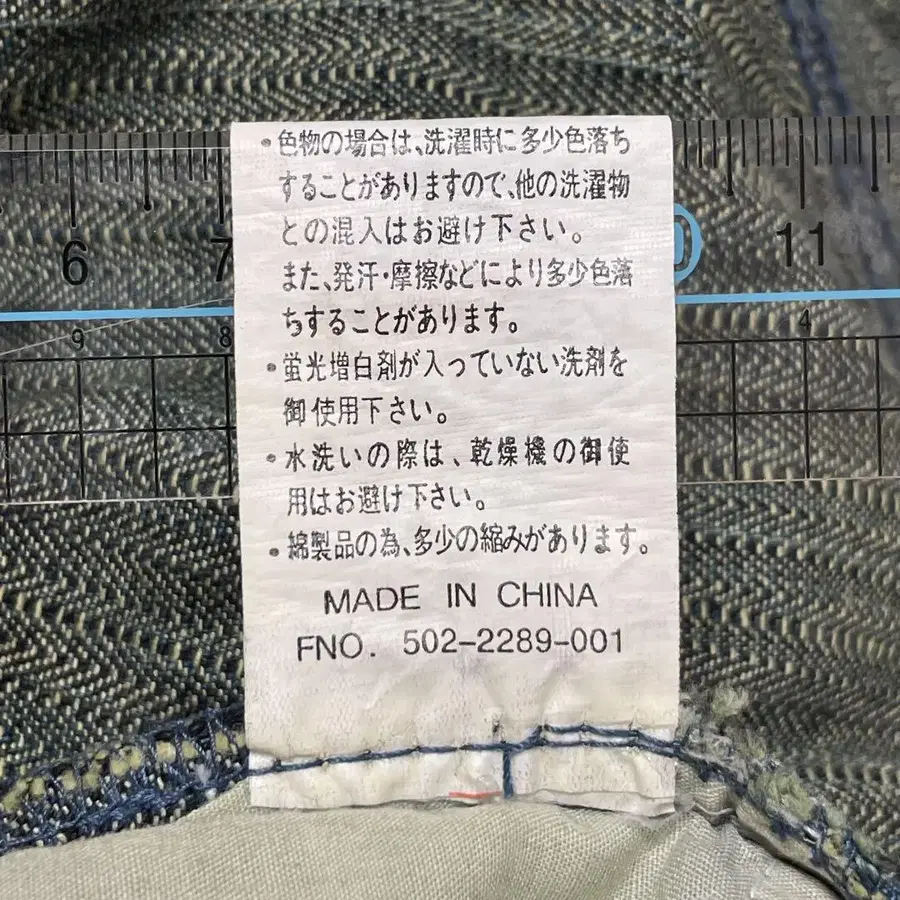 ・色物の場合は、洗濯時に多少色落ち
することがありますので、他の洗濯物
との混入はお避け下さい。
また、発汗・摩擦などにより多少色落
ちすることがあります。
・蛍光増白剤が入っていない洗剤を
御使用下さい。
・水洗いの際は、乾燥機の御使
用はお避け下さい。
・綿製品の為、多少の縮みがあります。
MADE IN CHINA
FNO. 502-2289-001
6 7 11
9 8 4